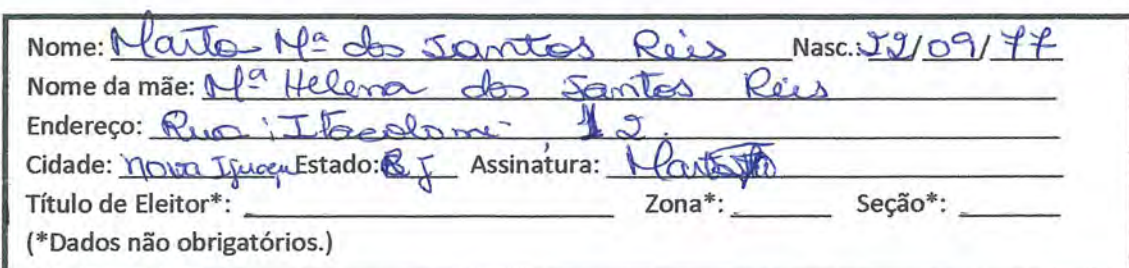 Nome: Marta Mª dos Santos Reis Nasc.: 22/09/77
Nome da mãe: Mª Helena dos Santos Reis
Endereço: Rua: Itacolomi 12.
Cidade: Nova Iguaçu Estado: RJ Assinatura: Marta
Título de Eleitor*: Zona*: Seção*:
(*Dados não obrigatórios.)